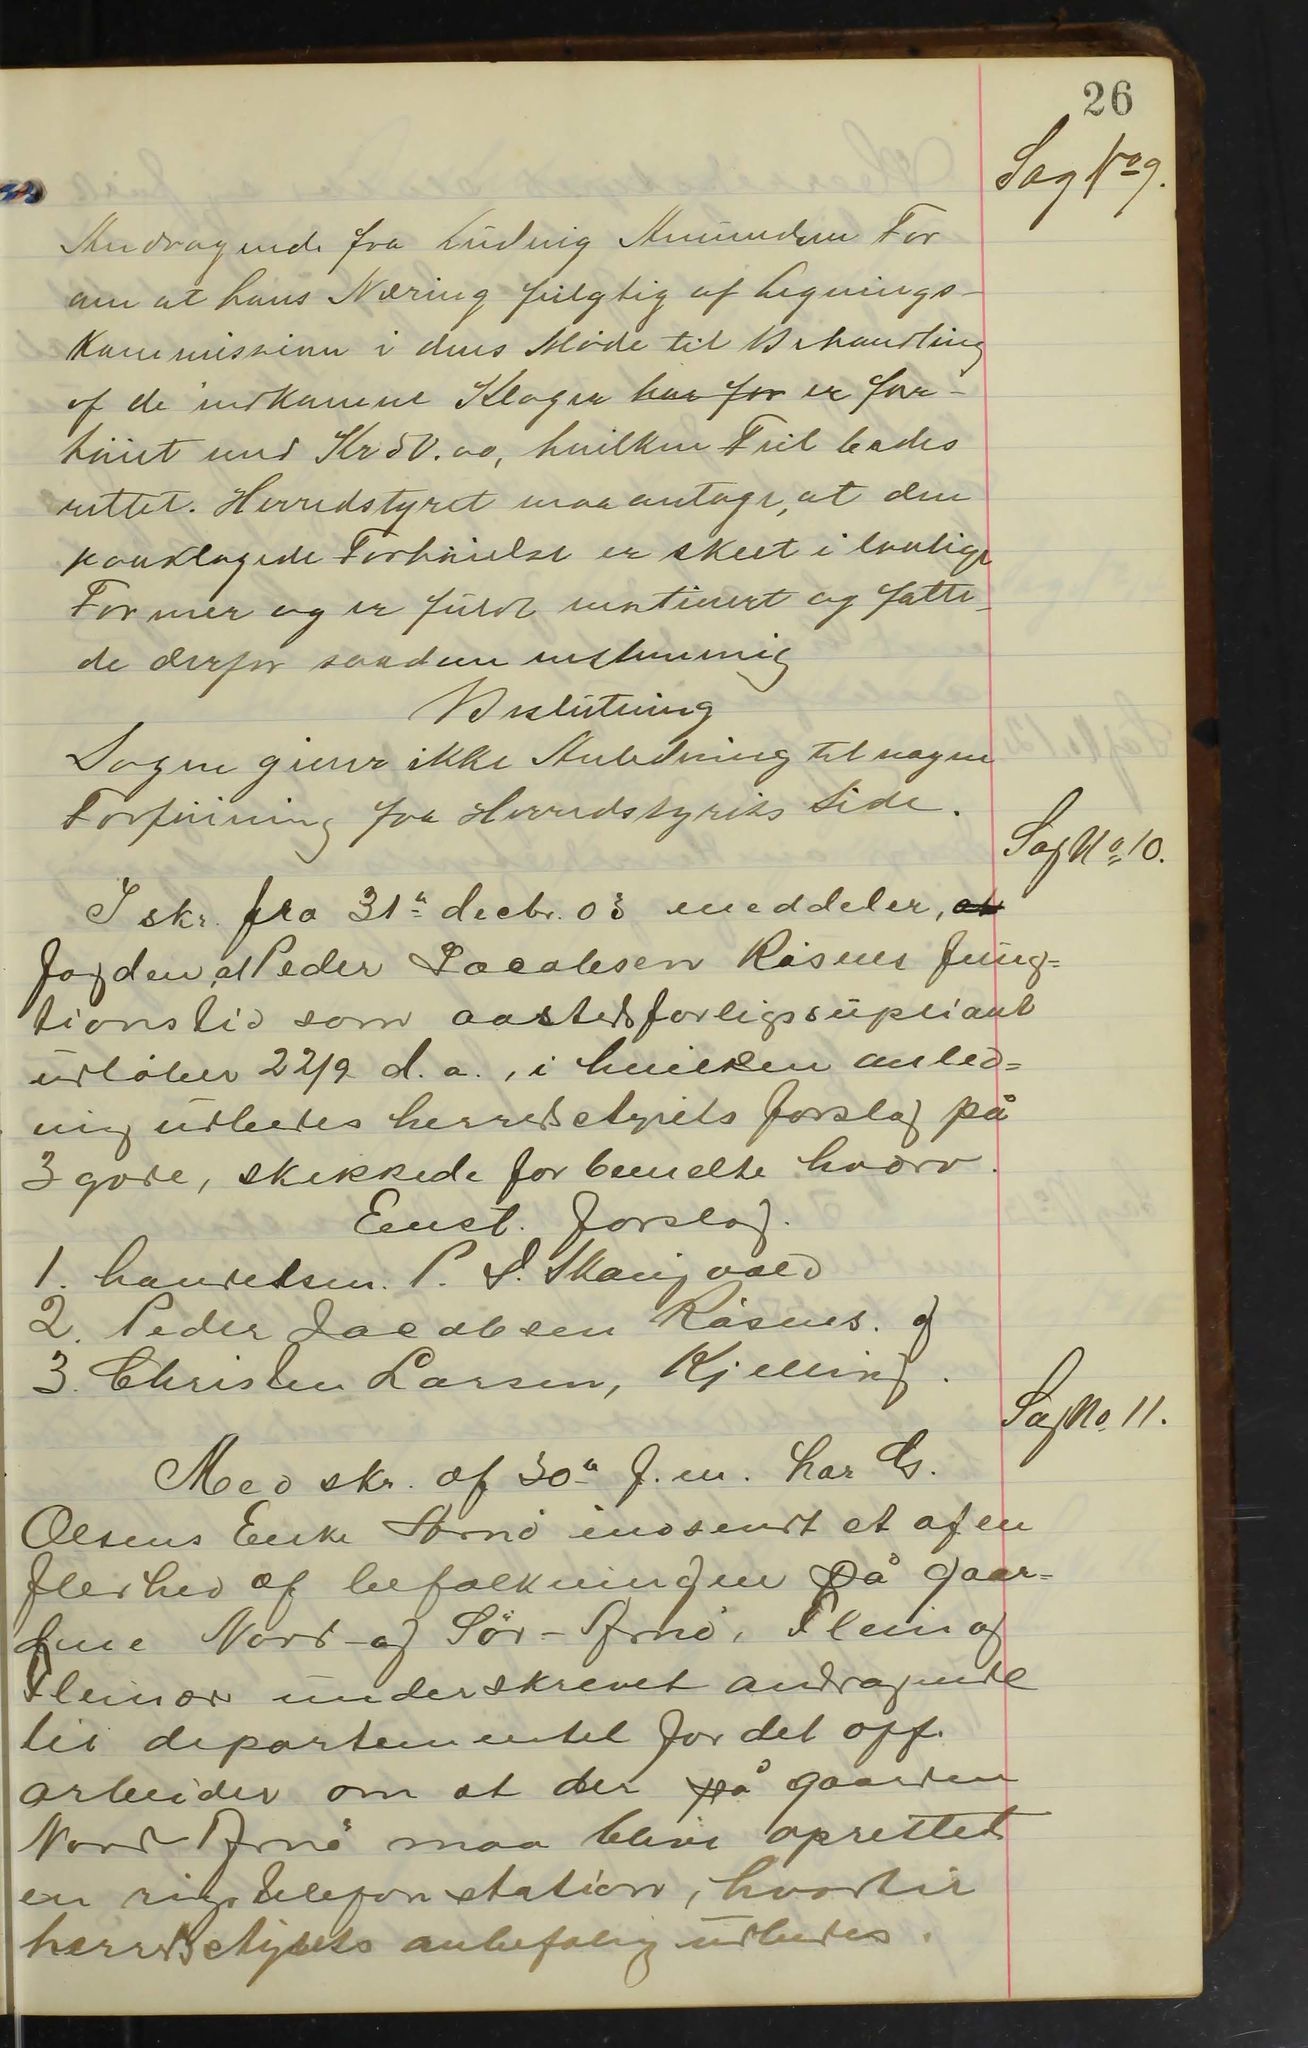 26
Sag No 9.
Andragende fra Ludvig Amundsen For
om at hans Næring feilagtig af Lignings-
kommissionen i dens Møde til Behandling
af de indkomne Klager har for er for-
høiet med Kr 50.00, hvilken Feil bedes
rettet. Herredstyret maa antage, at den
paaklagede Forhøielse er skeet i lovlige
Former og er fuldt motiveret og fatte-
de derfor saadan enstemmig
Beslutning
Sagen giver ikke Anledning til nogen
Forføining fra Herredstyrets Side.
Sag No 10.
I skr. fra 31te decbr. 03 meddeler, at
fogden, at Peder Jacobsen Råsnes fung-
tionstid som aastedsforligssupliant
udløber 22/2 d. a., i hvilken anled-
ning udbedes herredstyrets forslag på
3 gode, skikkede for bemeldte hverv.
Enst. forslag.
1. handelsm. P. J. Skaugvold
2. Peder Jacobsen Råsnes. og
3. Christen Larsen, Kjelling.
Sag No. 11.
Med skr. af 30te f. m. har Chr.
Olsens Enke Arnø indsendt et af en
flerhed af befolkningen på gaar-
dene Nord- og Sør-Arnø, Flein og
Fleinør underskrevet andragende
til departementet for det off.
arbeider om at der på gaarden
Nord-Arnø maa blive oprettet
en rigstelefonstation, hvortil
herredstyrets anbefaling udbedes.